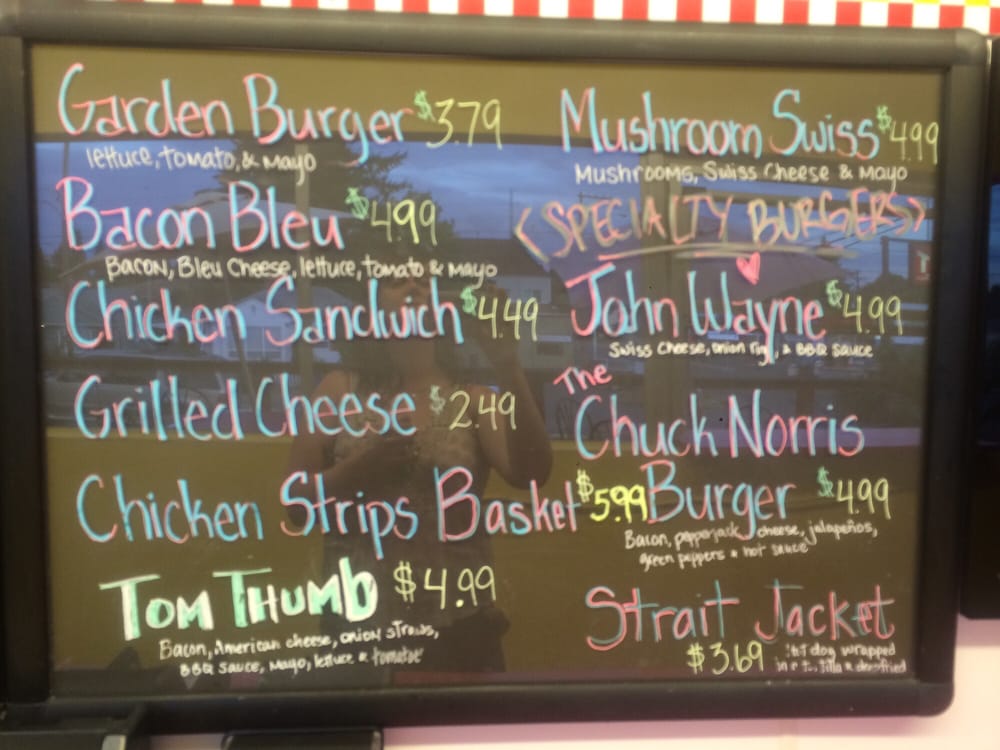 Garden Burger $3.79
lettuce, tomato, & Mayo
Bacon Bleu $4.99
Bacon, Bleu Cheese, lettuce, tomato & Mayo
Chicken Sandwich $4.49
Grilled Cheese $2.49
Chicken Strips Basket $5.99
Tom Thumb $4.99
Bacon, American cheese, onion straws,
BBQ sauce, mayo, lettuce & tomatoe
Mushroom Swiss $4.99
Mushrooms, Swiss Cheese & Mayo
<SPECIALTY BURGERS>
John Wayne $4.99
Swiss Cheese, onion ring, & BBQ sauce
The
Chuck Norris
Burger $4.99
Bacon, pepperjack cheese, jalapeños,
green peppers & hot sauce
Strait Jacket
$3.69 dog wrapped
in & deepfried